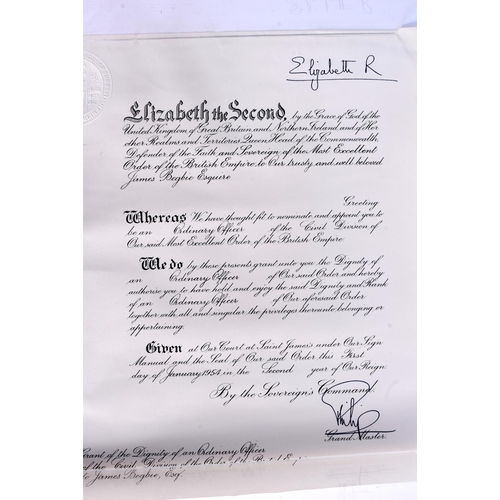 Elizabeth R
Elizabeth the Second, by the Grace of God of the
United Kingdom of Great Britain and Northern Ireland and of Her
other Realms and Territories Queen, Head of the Commonwealth,
Defender of the Faith and Sovereign of the Most Excellent
Order of the British Empire, to Our trusty and well beloved
James Begbie Esquire
Greeting
Whereas We have thought fit to nominate and appoint you to
be an Ordinary Officer of the Civil Division of
Our said Most Excellent Order of the British Empire
We do by these presents grant unto you the Dignity of
an Ordinary Officer of Our said Order and hereby
authorise you to have hold and enjoy the said Dignity and Rank
of an Ordinary Officer of Our aforesaid Order
together with all and singular the privileges thereunto belonging or
appertaining.
Given at Our Court at Saint James's under Our Sign
Manual and the Seal of Our said Order this First
day of January 1954 in the Second year of Our Reign.
By the Sovereign's Command.
Philip
Grand Master.
Grant of the Dignity of an Ordinary Officer
of the Civil Division of the Order of the
to James Begbie, Esq.